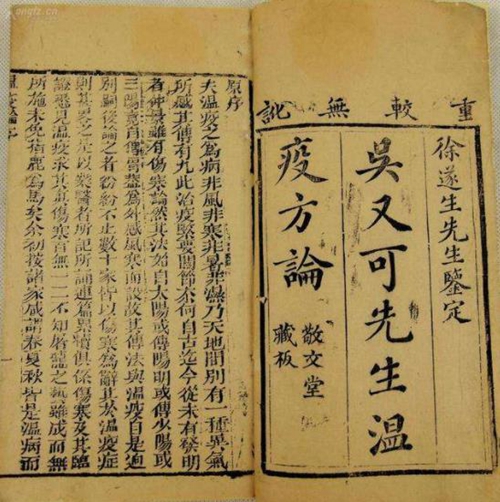 重較無訛
徐遂生先生鑒定
吳又可先生溫
疫方論
敬文堂
藏板
原序
夫溫疫之爲病非風非寒非暑非濕乃天地間別有一種異氣
所感其傳有九此治疫緊要關節奈何自古迄今從未有發明
者仲景雖有傷寒論然其法始自太陽或傳陽明或傳少陽或
三陽竟自傳胃蓋爲外感風寒而設故其傳法與溫疫自是迥
別嗣後論之者紛紛不止數十家皆以傷寒爲辭其於溫疫症
則甚畧之是以業醫者所記所誦連篇累牘俱係傷寒及其臨
證悉見溫疫求其真傷寒百無一二不知屠龍之藝雖成而無
所施未免指鹿爲馬矣余初按諸家咸謂春夏秋皆是溫病而